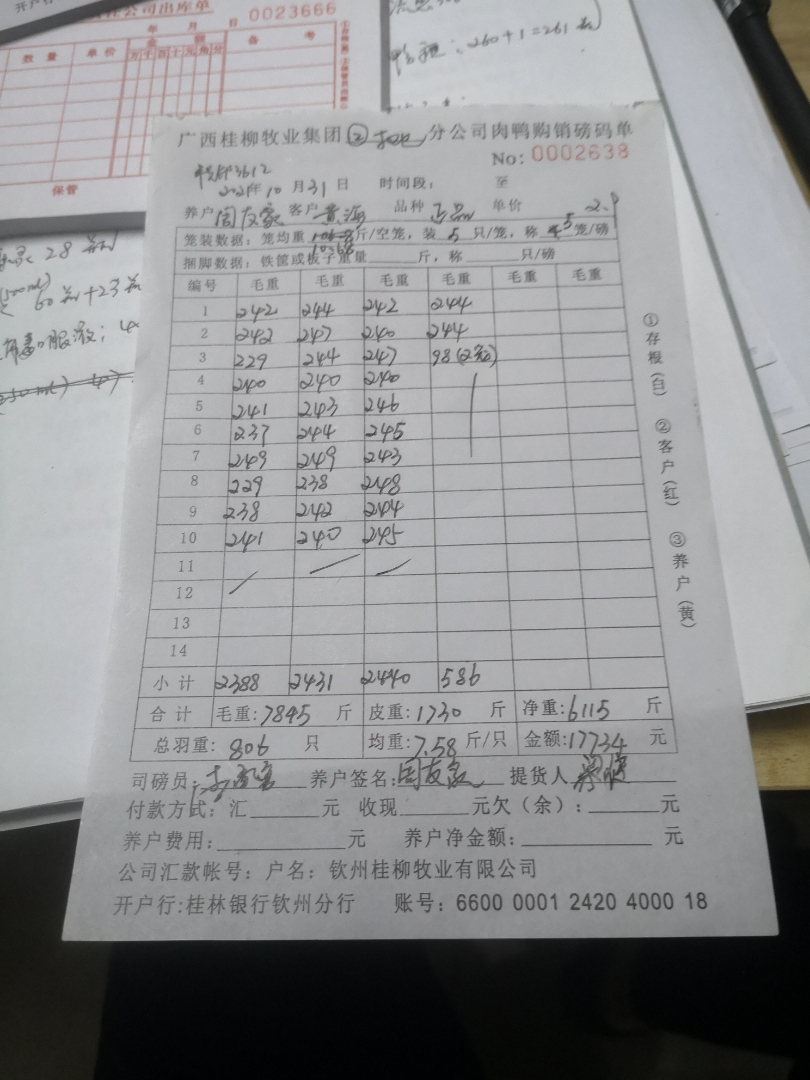 开户行
公司出库单
0023666
年 月 日
数量 单价 金额 备考
万 千 百 十 元 角 分
保管
260+1=261
28
60 +23
口服液;
广西桂柳牧业集团 分公司肉鸭购销磅码单
No: 0002638
3612
2021年10月31日 时间段: 至
养户 周友家 客户 黄海 品种 正品 单价 2.9
笼装数据:笼均重 斤/空笼,装 5 只/笼,称 5 笼/磅
捆脚数据:铁筐或板子重量 斤,称 只/磅
编号 毛重 毛重 毛重 毛重 毛重 毛重
1 242 244 242 244
2 242 247 240 244
3 229 244 247 98
4 240 240 240
5 241 243 246
6 237 244 245
7 249 249 243
8 229 238 248
9 238 242 244
10 241 240 245
11
12
13
14
小计 2388 2431 2440 586
合计 毛重:7845 斤 皮重:1730 斤 净重:6115 斤
总羽重:806 只 均重:7.58 斤/只 金额:17734 元
司磅员: 养户签名:周友家 提货人
付款方式:汇 元 收现 元欠(余): 元
养户费用: 元 养户净金额: 元
公司汇款帐号:户名:钦州桂柳牧业有限公司
开户行:桂林银行钦州分行 账号:6600 0001 2420 4000 18
①存根(白)
②客户(红)
③养户(黄)